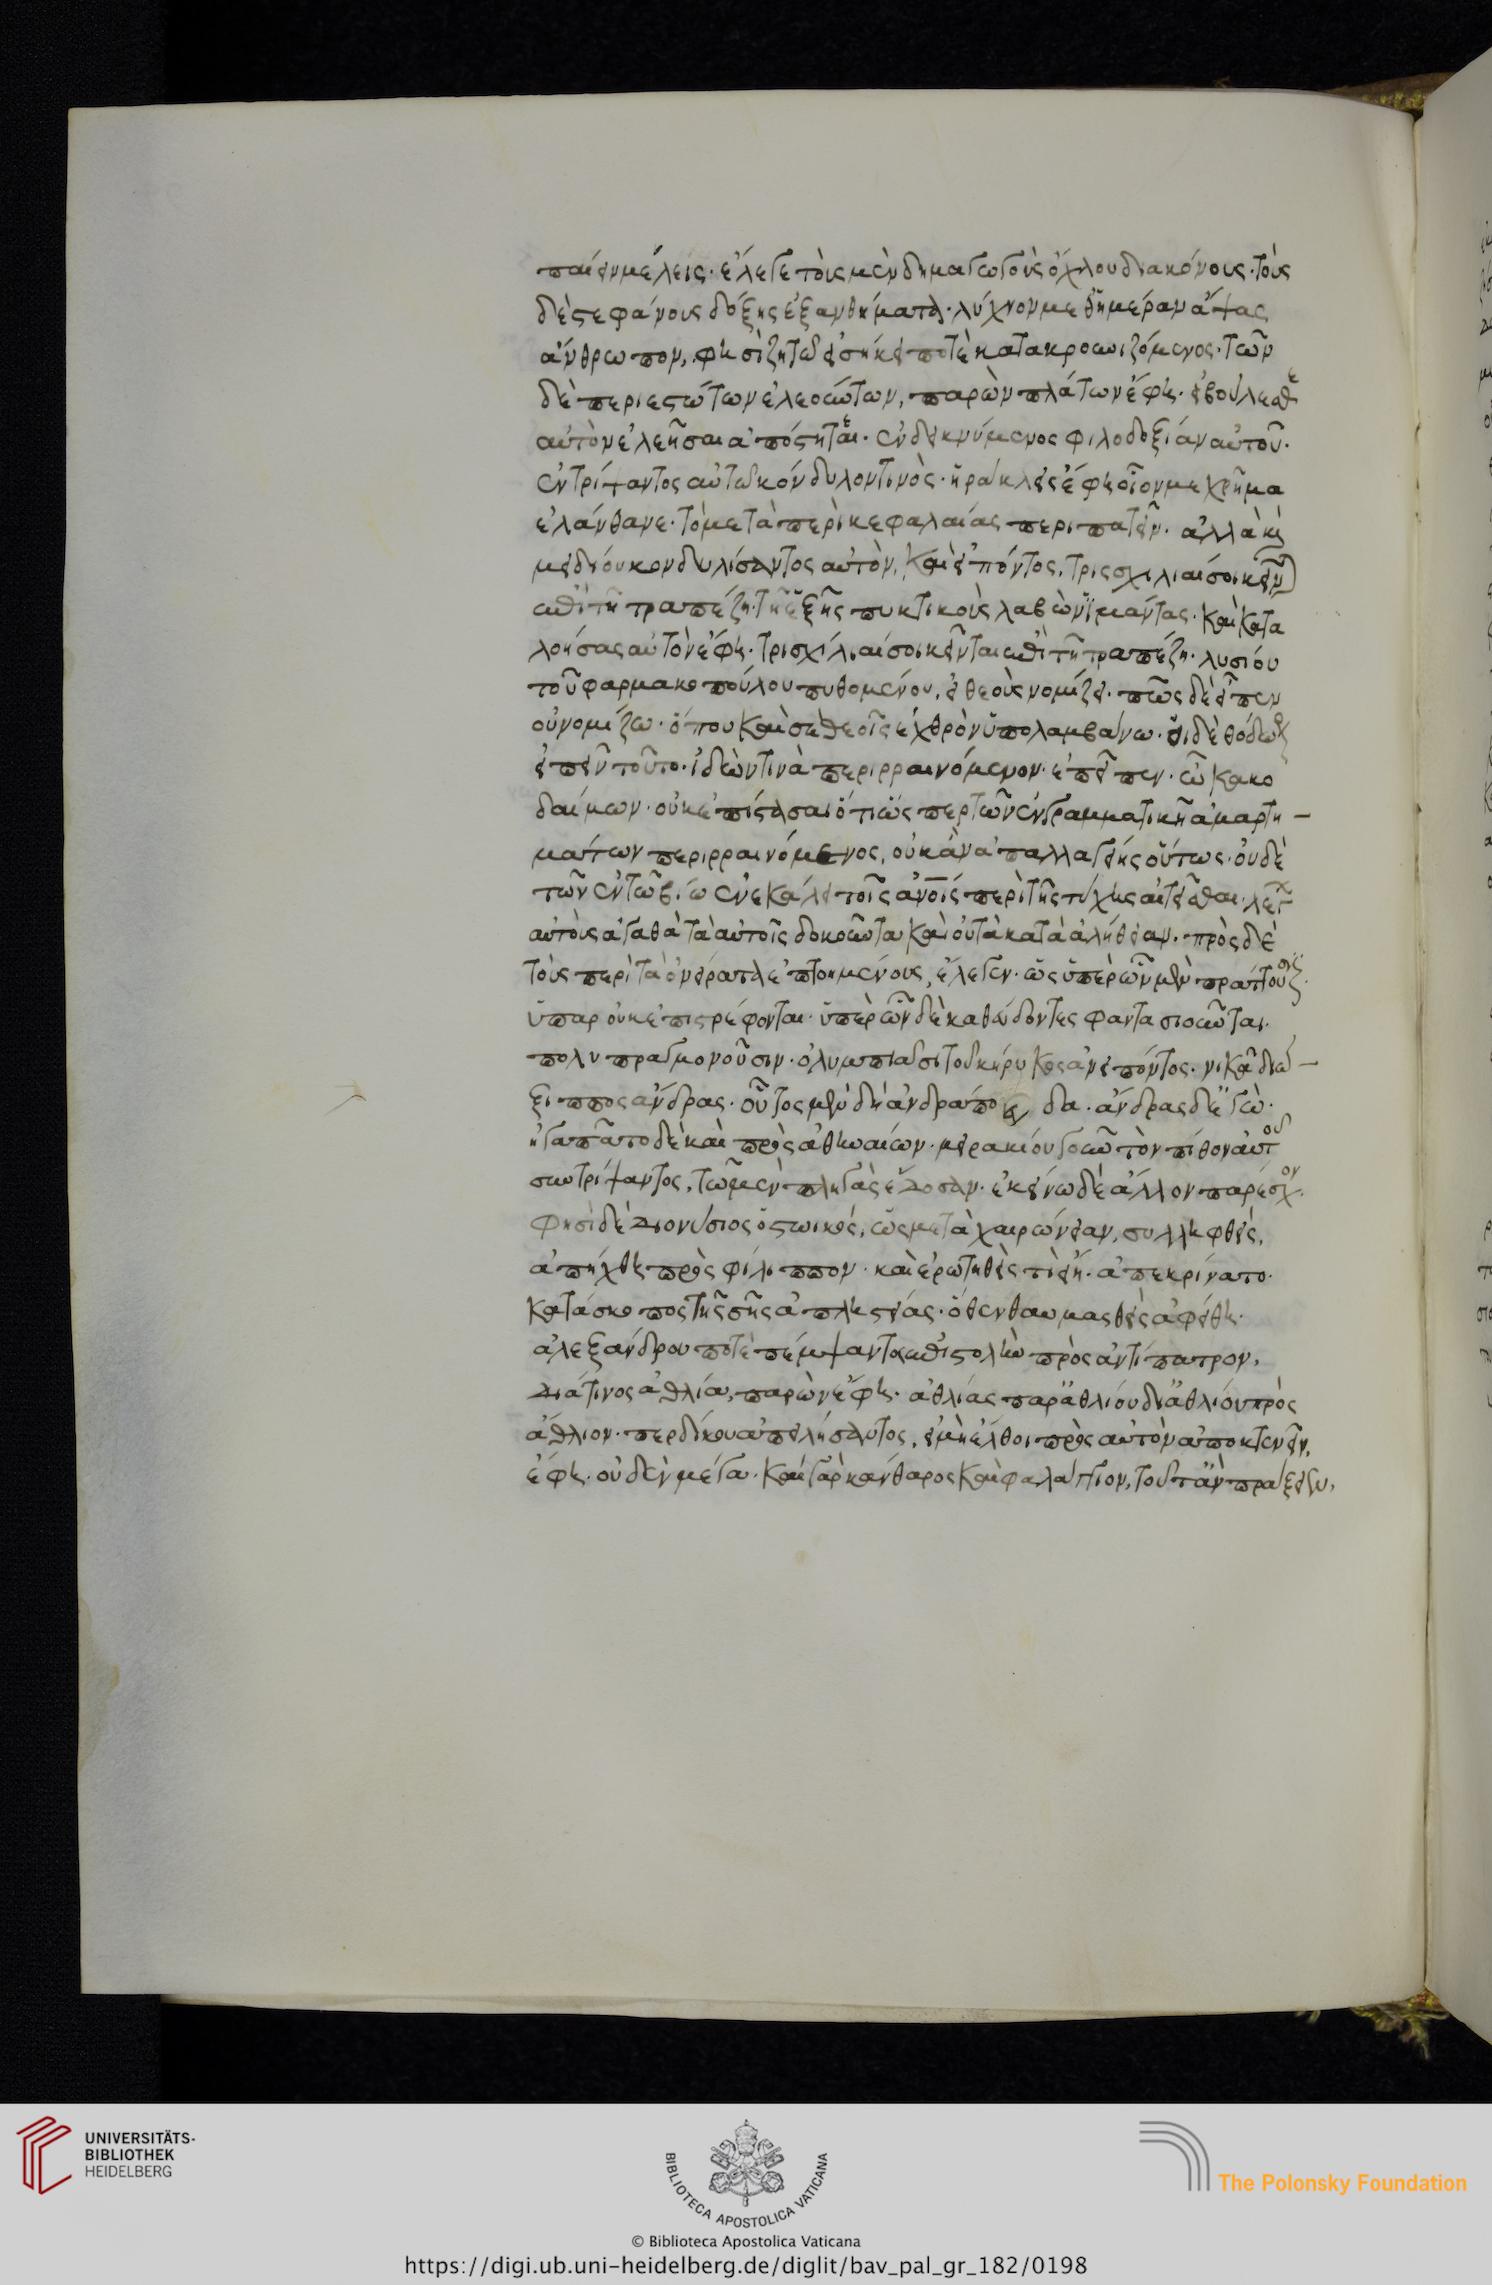 παίειν μέλεις· ἔλεγε τοὺς μὲν δημαγωγοὺς ὄχλου διακόνους· τοὺς
δὲ στεφάνους δόξης ἐξανθήματα· λύχνον μεθ' ἡμέραν ἅψας
ἄνθρωπον, φησὶ ζητῶ εἱστήκει ποτὲ κατακρουνιζόμενος· τῶν
δὲ περιεστώτων ἐλεούντων, παρὼν πλάτων ἔφη· εἰ βούλεσθε
αὐτὸν ἐλεῆσαι ἀπόστητε· ἐνδεικνύμενος φιλοδοξίαν αὐτοῦ·
ἐντρίψαντος αὐτῶ κόνδυλον τινὸς· ἡράκλεις ἔφη οἷον με χρῆμα
ἐλάνθανε· τὸ μετὰ περικεφαλαίας περιπατεῖν· ἀλλὰ καὶ
μειδίου κονδυλίσαντος αὐτὸν, καὶ εἰπόντος, τρισχίλιαι σοι κεῖν
ται ἐπὶ τῆ τραπέζη· τῆ ἑξῆς πυκτικοὺς λαβὼν ἱμάντας· καὶ κατα
λοήσας αὐτὸν ἔφη· τρισχίλιαί σοι κεῖνται ἐπὶ τῆ τραπέζη· λυσίου
τοῦ φαρμακοπούλου πυθομένου, εἰ θεοὺς νομίζει· πῶς δὲ εἶπεν
οὐ νομίζω· ὅπου καὶ σὲ θεοῖς ἐχθρὸν ὑπολαμβάνω· οἱ δὲ θεόδωρον
εἰπεῖν τοῦτο· ἰδὼν τινὰ περιρραινόμενον· ἐπεῖπεν· ὦ κακο
δαίμων· οὐκ ἐπίστασαι ὅτι ὥσπερ τῶν ἐν γραμματικῆ ἁμαρτη-
μάτων περιρραινόμενος, οὐκ ἂν ἀπαλλαγείης οὕτως· οὐδὲ
τῶν ἐν τῶ βίω ἐνεκάλει τοῖς ἀνοις περὶ τῆς τύχης αἰτεῖσθαι· λέγων
αὐτοὺς ἀγαθὰ τὰ αὐτοῖς δοκοῦντα καὶ οὐ τὰ κατὰ ἀλήθειαν· πρὸς δὲ
τοὺς περὶ τὰ ὀνείρατα ἐπτοημένους, ἔλεγεν· ὡς ὑπὲρ ὧν μὲν πράττουσιν
ὕπαρ οὐκ ἐπιστρέφονται· ὑπὲρ ὧν δὲ καθεύδοντες φαντασιοῦνται·
πολυπραγμονοῦσιν· ὀλυμπιάσι τοῦ κήρυκος ἀνειπόντος· νικᾶ διώ-
ξιππος ἄνδρας· οὗτος μὲν δὴ ἀνδράποδα· ἄνδρας δὲ ἐγὼ·
ἠγαπᾶτο δὲ καὶ πρὸς ἀθηναίων· μειρακίου γοῦν τὸν πίθον αὐτοῦ
συντρίψαντος, τῶ μὲν πληγὰς ἔδοσαν· ἐκείνω δὲ ἄλλον παρέσχον·
φησὶ δὲ διονύσιος ὁ στωικός, ὡς μετὰ χαιρώνειαν, συλληφθεὶς,
ἀπήχθη πρὸς φίλιππον· καὶ ἐρωτηθεὶς τίς εἴη· ἀπεκρίνατο·
κατάσκοπος τῆς σῆς ἀπληστίας· ὅθεν θαυμασθεὶς ἀφείθη·
ἀλεξάνδρου ποτὲ πέμψαντος ἐπιστολὴν πρὸς ἀντίπατρον,
διά τινος ἀθλία, παρὼν ἔφη· ἀθλίας παρ' ἀθλίου δι' ἀθλίου πρὸς
ἄθλιον· περδίκκου ἀπειλήσαντος, εἰ μὴ ἔλθοι πρὸς αὐτὸν ἀποκτενεῖν,
ἔφη· οὐδὲν μέγα· καὶ γὰρ κάνθαρος καὶ φαλάγγιον, τοῦτ' ἂν πράξειεν,
UNIVERSITÄTS-
BIBLIOTHEK
HEIDELBERG
BIBLIOTECA APOSTOLICA VATICANA
The Polonsky Foundation
© Biblioteca Apostolica Vaticana
https://digi.ub.uni-heidelberg.de/diglit/bav_pal_gr_182/0198